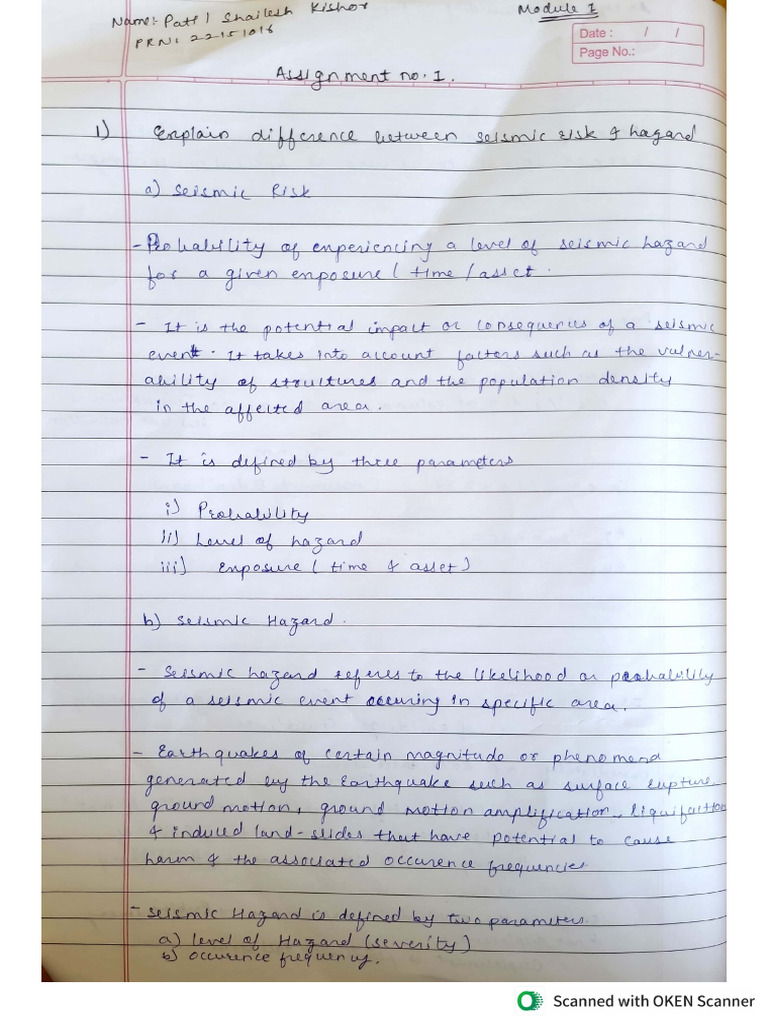 Name:- Patil Shailesh Kishor
Module I
PRN: 22151016
Date : / /
Page No.:
Assignment no. 1.
1) Explain difference between seismic risk & hazard
a) Seismic Risk
- Probability of experiencing a level of seismic hazard
for a given exposure ( time / asset .
- It is the potential impact or consequences of a seismic
event . It takes into account factors such as the vulner-
ability of structures and the population density
in the affected area .
- It is defined by three parameters
i) Probability
ii) Level of hazard
iii) Exposure ( time & asset )
b) Seismic Hazard .
- Seismic hazard referes to the likelihood or probability
of a seismic event occuring in specific area .
- Earthquakes of certain magnitude or phenomena
generated by the Earthquake such as surface rupture,
ground motion, ground motion amplification, liquifaction
& induced land-slides that have potential to cause
harm & the associated occurence frequencies
- Seismic Hazard is defined by two parameters
a) level of Hazard (severity)
b) occurence frequency.
Scanned with OKEN Scanner